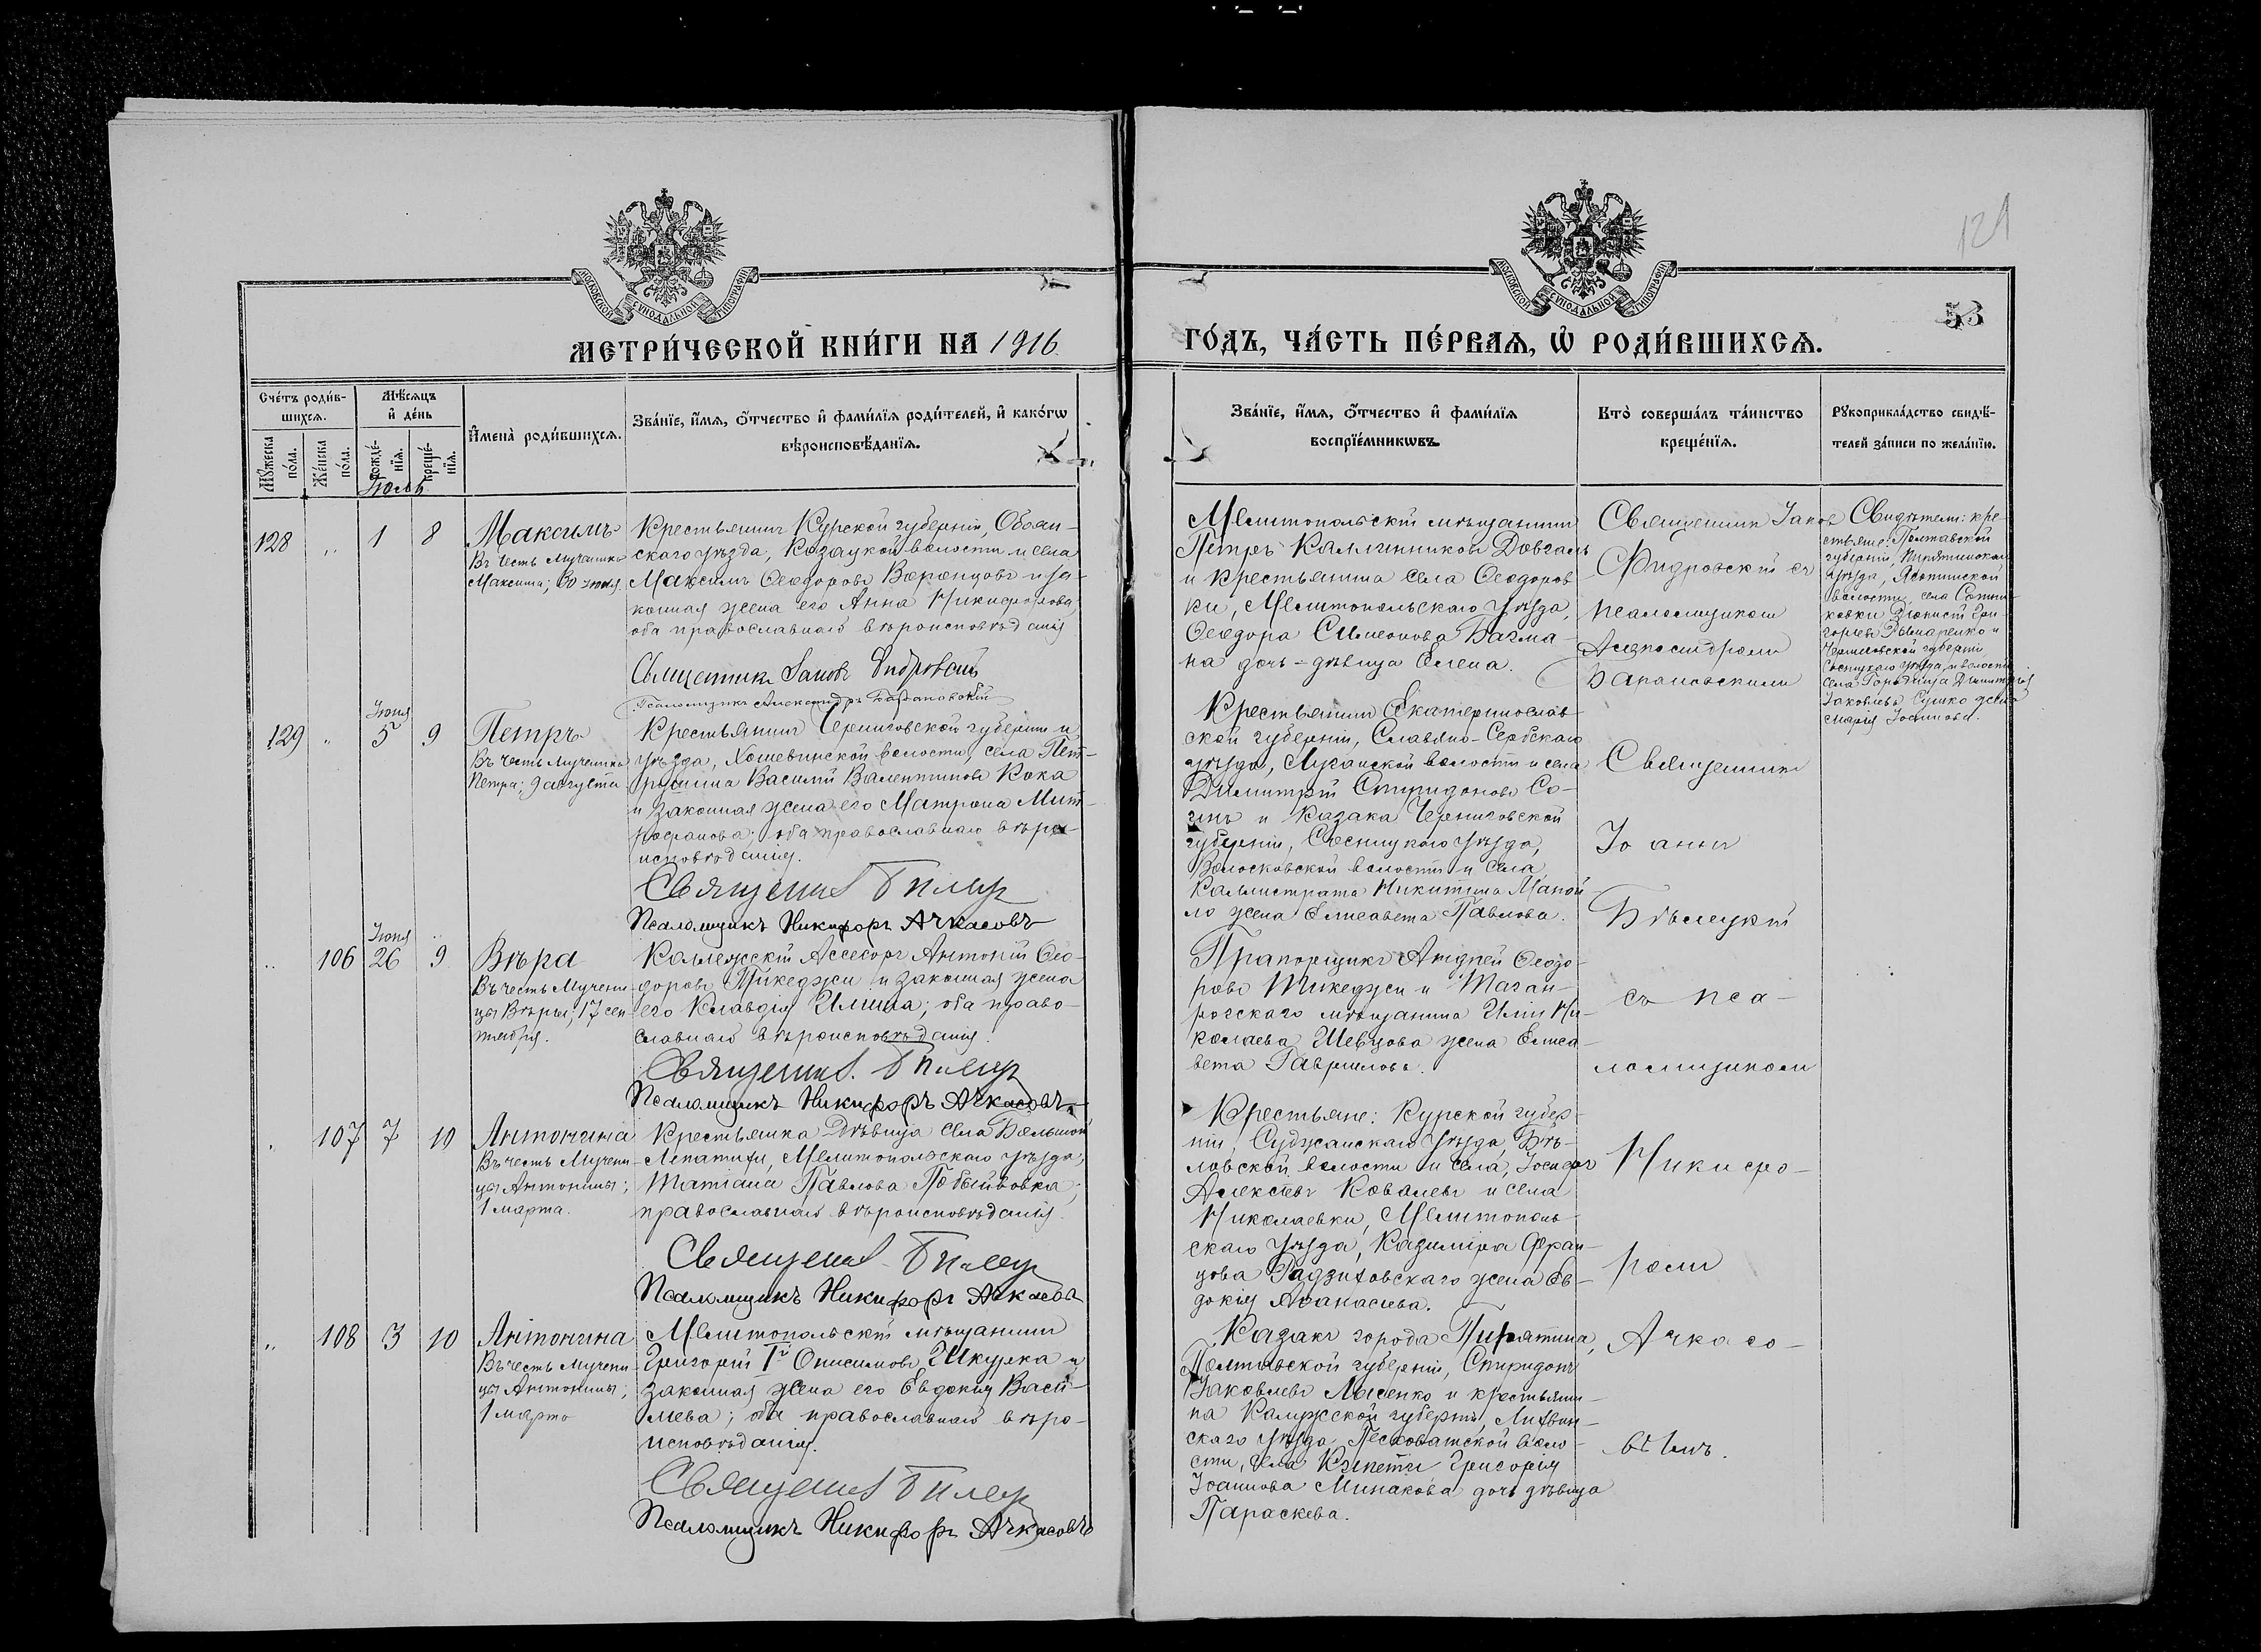 129
53
МОСКОВСКОЙ СѴНОДАЛЬНОЙ ТИПОГРАФІИ
МОСКОВСКОЙ СѴНОДАЛЬНОЙ ТИПОГРАФІИ
МЕТРИ́ЧЕСКОЙ КНИ́ГИ НА 1916
ГО́ДЪ, ЧА́СТЬ ПЕ́РВАЯ, Ѡ РОДИ́ВШИХСЯ.
Сче́тъ роди́в-
шихся.
Мꙋжеска по́ла.
Же́нска по́ла.
Мѣ́сяцъ
и де́нь
Рожде́-
нїя.
Креще́-
нїя.
И҆мена̀ роди́вшихся.
Зва́нїе, и҆́мя, ѻ҆́тчество и҆ фами́лїя роди́телей, и҆ како́гѡ
вѣроисповѣ́данїя.
Зва́нїе, и҆́мя, ѻ҆́тчество и҆ фами́лїя
воспрїе́мникѡвъ.
Кто̀ соверша́лъ та́инство
креще́нїя.
Рꙋкоприкла́дство свидѣ́-
телей за́писи по жела́нїю.
Іюль
128 „ 1 8
Максимъ
Въ честь Мученика
Максима;
Крестьянинъ Курской губерніи, Обоян-
скаго уѣзда, Казацкой волости и села
Максимъ Ѳеодоровъ Воронцовъ и за-
конная жена его Анна Никифорова,
оба православнаго вѣроисповѣданія
Священникъ Іаковъ Фидровскій
Псаломщикъ Александръ Барановскій
Мелитопольскій мѣщанинъ
Петръ Каллинниковъ Довгаль
и крестьянина села Ѳеодоров-
ки, Мелитопольскаго уѣзда,
Ѳеодора Симеонова Багма-
на дочь-дѣвица Елена.
Священникъ Іаковъ
Фидровскій съ
псаломщикомъ
Александромъ
Барановскимъ
Свидѣтели: кре-
стьяне: Полтавской
губерніи, Пирятинскаго
уѣзда, Яготинской
волости, села Сотни-
ковки Діонисій Гри-
горьевъ Рымаренко и
Черниговской губерніи,
Сосницкаго уѣзда, и волости
села Городища Димитрія
Іаковлева Сушко жена
Марія Іосифова.
129 „ Іюня 5 9
Петръ
Въ честь Мученика
Петра; 9 августа
Крестьянинъ Черниговской губерніи и
уѣзда, волости, села Пет-
рушина Василій Валентиновъ Кока
и законная жена его Матрона Мит-
рофанова; оба православнаго вѣро-
исповѣданія.
Священникъ
Псаломщикъ Никифоръ Ачкасовъ
Крестьянинъ Екатеринослав-
ской губерніи, Славяно-Сербскаго
уѣзда, Луганской волости и села
Димитрій Спиридоновъ Со-
и казака Черниговской
губерніи, Сосницкаго уѣзда,
Волосковской волости и села,
Каллистрата Никитина Маной-
ло жена Елисавета Павлова.
Священникъ
Іоаннъ
Бѣлецкій
„ 106 Іюня 26 9
Вѣра
Въ честь Мучени-
цы Вѣры; 17 сен-
тября.
Коллежскій Ассесоръ Антоній Ѳео-
доровъ Тикеджи и законная жена
его Клавдія Ильина; оба право-
славнаго вѣроисповѣданія.
Священникъ
Псаломщикъ Никифоръ Ачкасовъ
Прапорщикъ Андрей Ѳеодо-
ровъ Тикеджи и Таган-
рогскаго мѣщанина Иліи Ни-
колаева Шевцова жена Елиса-
вета Гаврилова.
съ пса-
ломщикомъ
„ 107 7 10
Антонина
Въ честь Мучени-
цы Антонины;
1 марта.
Крестьянка-дѣвица села Большой
Лепатихи, Мелитопольскаго уѣзда,
Татіана Павлова
православнаго вѣроисповѣданія.
Священникъ
Псаломщикъ Никифоръ Ачкасовъ
Крестьяне: Курской губер-
ніи, Суджанскаго уѣзда, Бѣ-
ловской волости и села, Іосифъ
Алексѣевъ Ковалевъ и села
Николаевки, Мелитополь-
скаго уѣзда, Казиміра Фран-
цова Гадзиховскаго жена Ев-
докія Аѳанасіева.
Никифо-
ромъ
„ 108 3 10
Антонина
Въ честь Мучени-
цы Антонины;
1 марта
Мелитопольскій мѣщанинъ
Григорій 1й Онисимовъ Шкурка и
законная жена его Евдокія Васи-
льева; оба православнаго вѣро-
исповѣданія.
Священникъ
Псаломщикъ Никифоръ Ачкасовъ
Казакъ города Пирятина,
Полтавской губерніи, Спиридонъ
Іаковлевъ Лысенко и крестьяни-
на Калужской губерніи, Лихвин-
скаго уѣзда, Песковатской воло-
сти, села Григорія
Іоаннова Минакова дочь дѣвица
Параскева.
Ачкасо-
вымъ.